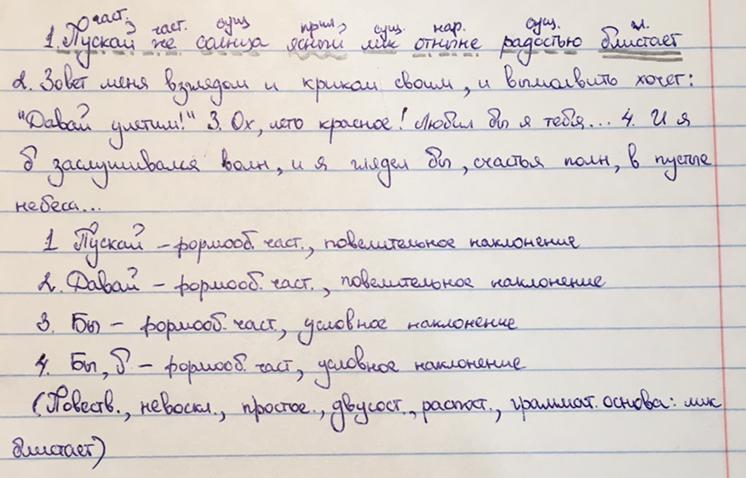 част. част. сущ прил. сущ. нар. сущ. гл.
1. Пускай же солнца ясный лик отныне радостью блистает
2. Зовет меня взглядом и криком своим, и вымолвить хочет:
"Давай улетим!" 3. Ох, лето красное! Любил бы я тебя... 4. И я
б заслушивался волн, и я глядел бы, счастья полн, в пустые
небеса...
1 Пускай – формооб. част., повелительное наклонение
2. Давай – формооб. част., повелительное наклонение
3. Бы – формооб. част, условное наклонение
4. Бы, б – формооб. част, условное наклонение
(Повеств., невоскл., простое., двусост., распост., граммат. основа: лик
блистает)